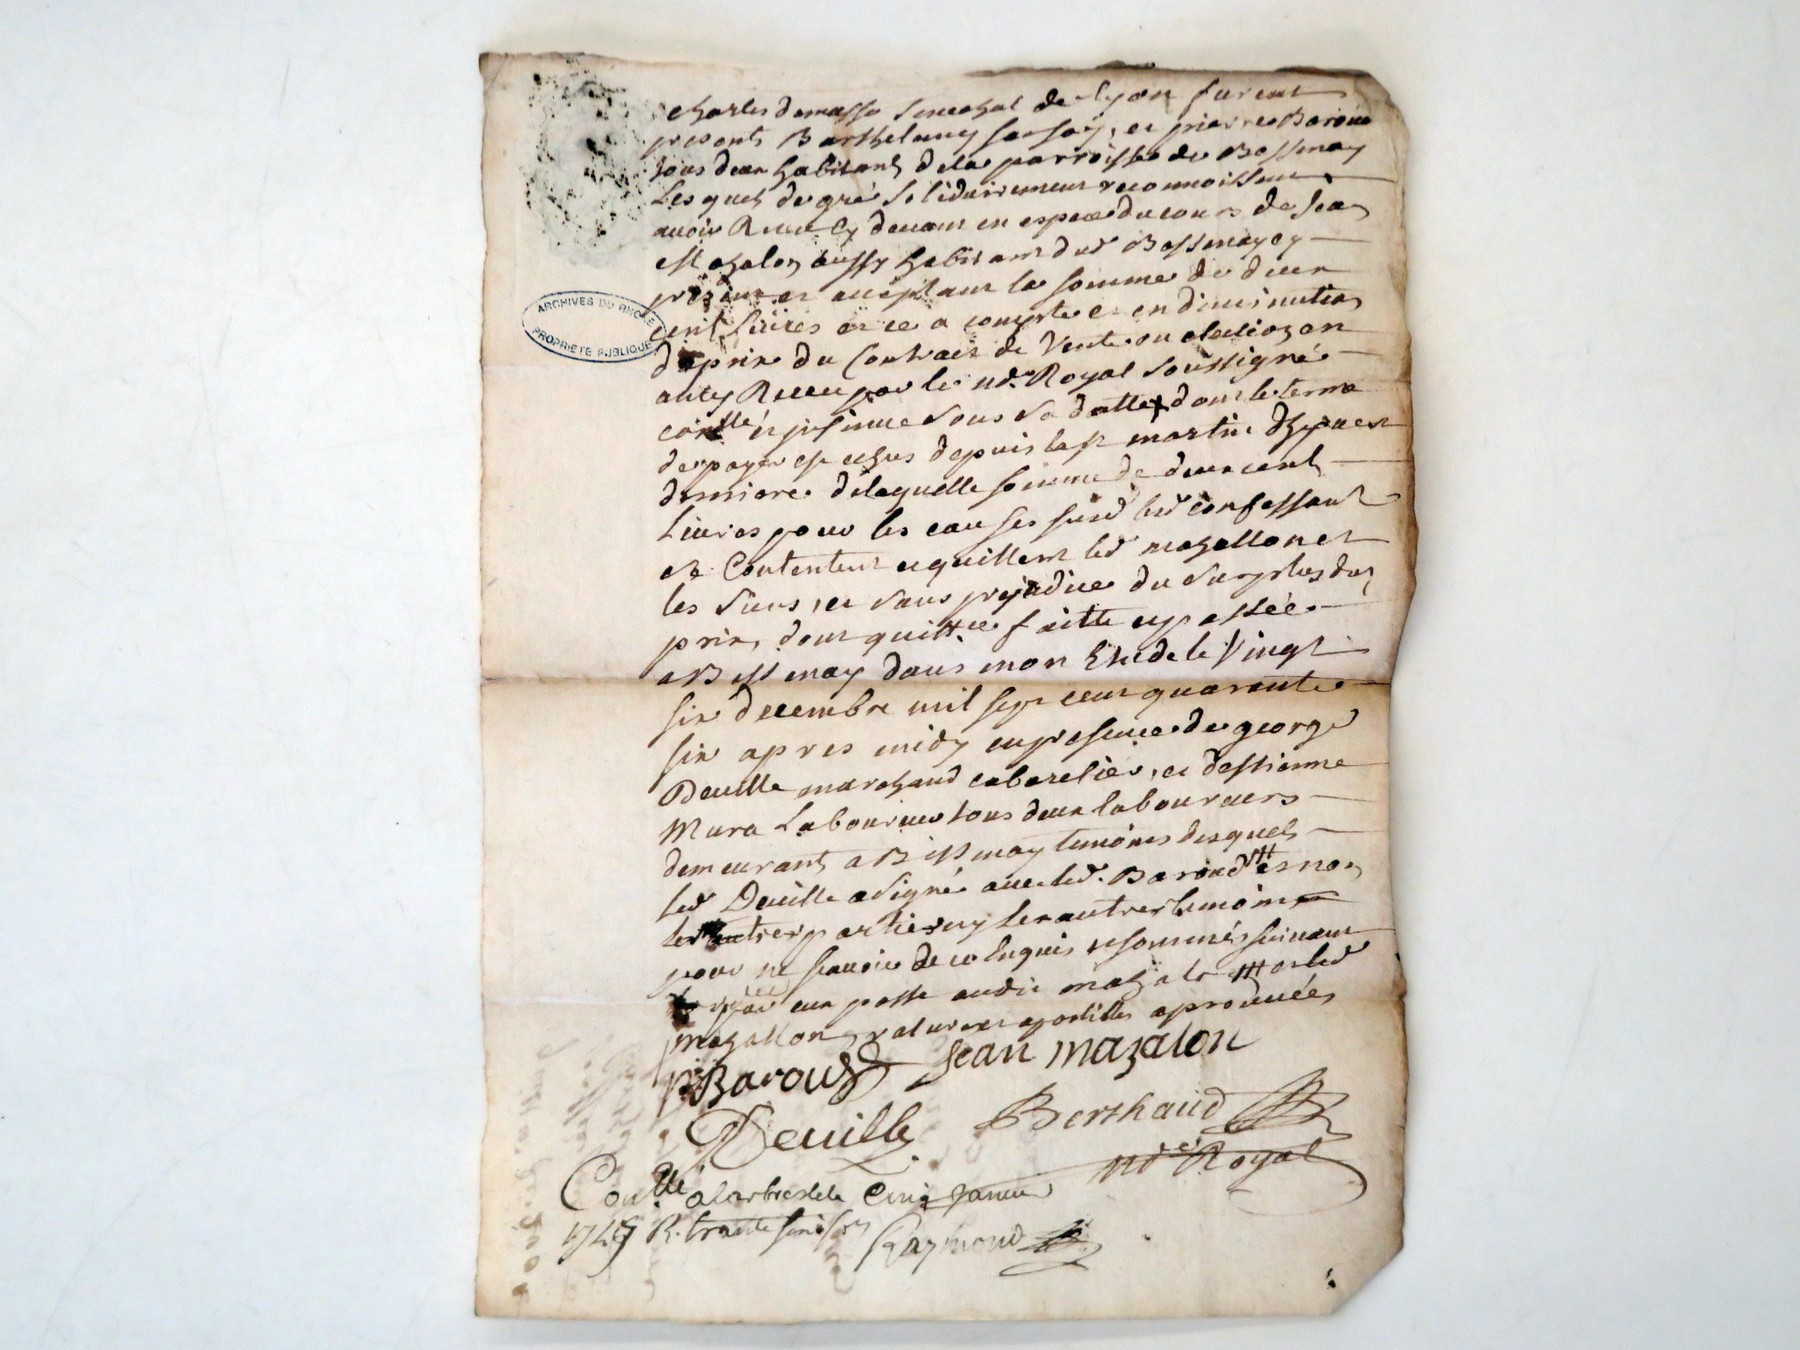 charles demasso senechal de Lyon furent
presents Barthelemy , et pierre Baroud
tous deux habitants dela parroisse de Bessenay
Lesquels de gré solidairement reconnoissent
avoir Receu cy devant en espece du cours de Jean
Mazalon aussy habitant dud Bessenay cy
present et acceptant la somme de deux
cent livres et ce a compte et en diminution
du prix du Contrait de Vente ou election en
amy Receu par le nore Royal soussigné
conllé et insinué sous sa datte dont le terme
de payer est echus depuis la st martin d'hyver
derniere delaquelle somme de deux cent
Livres pour les causes susd lesd confessant
et Contentent aquittent led mazallon et
les siens, et sans prejudice du surplus dud
prix, dont quittce faitte et passée
a Bessenay dans mon Etude le Vingt
six decembre mil sept cent quarante
six apres midy en presence de george
Deville marchand cabaretier, et d'estienne
Mura Laboureur tous deux laboureurs
demeurants a Bessenay temoins desquels
led Deville a signé avec led. Baroud et non
les autres parties ny les autres temoins
pour ne scavoir de ce enquis et sommés suivant
 aux posse audit
mazallon, ratures et apostilles aprouvées
pBaroud Jean mazalon
Deville Berthaud
nore Royal
Conllé alarbresle le Cinq janvier
1747 R. trante six sols Raymond
ARCHIVES DU RHONE
PROPRIETE PUBLIQUE